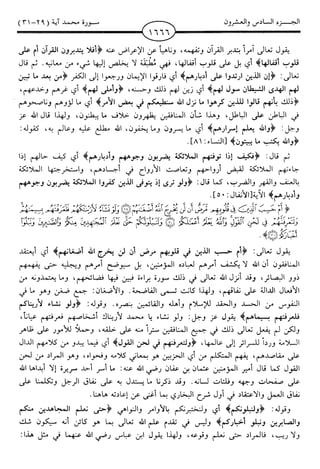 الجـــزء السادس والعشرون
سـورة محمد آية (٢٩-٣١)
١٦٦٦
يقول تعالى آمراً بتدبر القرآن وتفهمه، وناهياً عن الإعراض عنه ﴿أفلا يتدبرون القرآن أم على
قلوب أقفالها﴾ أي بل على قلوب أقفالها، فهي مُطْبَقَة لا يخلص إليها شيء من معانيه. ثم قال
تعالى: ﴿إن الذين ارتدوا على أدبارهم﴾ أي فارقوا الإيمان ورجعوا إلى الكفر ﴿من بعد ما تبين
لهم الهدى الشيطان سول لهم﴾ أي زين لهم ذلك وحسنه، ﴿وأملى لهم﴾ أي غرهم وخدعهم،
﴿ذلك بأنهم قالوا للذين كرهوا ما نزل الله سنطيعكم في بعض الأمر﴾ أي ما لؤوهم وناصحوهم
في الباطن على الباطل، وهذا شأن المنافقين يظهرون خلاف ما يبطنون، ولهذا قال الله عز
وجل: ﴿والله يعلم إسرارهم﴾ أي ما يسرون وما يخفون، الله مطلع عليه وعالم به، كقوله:
﴿والله يكتب ما يبيتون﴾ [النساء: ٨١].
ثم قال: ﴿فكيف إذا توفتهم الملائكة يضربون وجوههم وأدبارهم﴾ أي كيف حالهم إذا
جاءتهم الملائكة لقبض أرواحهم وتعاصت الأرواح في أجسادهم، واستخرجتها الملائكة
بالعنف والقهر والضرب، كما قال: ﴿ولو ترى إذ يتوفى الذين كفروا الملائكة يضربون وجوههم
وأدبارهم﴾ الآية [الأنفال: ٥٠].
أَمْ حَسِبَ الَّذِينَ فِي قُلُوبِهِم مَّرَضٌ أَن لَّن يُخْرِجَ اللَّهُ أَضْغَانَهُمْ ۝ وَلَوْ نَشَاءُ لَأَرَيْنَاكَهُمْ فَلَعَرَفْتَهُم بِسِيمَاهُمْ
وَلَتَعْرِفَنَّهُمْ فِي لَحْنِ الْقَوْلِ وَاللَّهُ يَعْلَمُ أَعْمَالَكُمْ ۝ وَلَنَبْلُوَنَّكُمْ حَتَّى نَعْلَمَ الْمُجَاهِدِينَ مِنكُمْ وَالصَّابِرِينَ وَنَبْلُوَا
أَخْبَارَكُمْ ۝
يقول تعالى: ﴿أم حسب الذين في قلوبهم مرض أن لن يخرج الله أضغانهم﴾ أي أيعتقد
المنافقون أن الله لا يكشف أمرهم لعباده المؤمنين، بل سيوضح أمرهم ويجليه حتى يفهمهم
ذوو البصائر، وقد أنزل الله تعالى في ذلك سورة براءة فبين فيها فضائحهم، وما يعتمدونه من
الأفعال الدالة على نفاقهم، ولهذا كانت تسمى الفاضحة. والأضغان: جمع ضغن وهو ما في
النفوس من الحسد والحقد للإسلام وأهله والقائمين بنصره. وقوله: ﴿ولو نشاء لأريناكهم
فلعرفتهم بسيماهم﴾ يقول عز وجل: ولو نشاء يا محمد لأريناك أشخاصهم فعرفتهم عياناً،
ولكن لم يفعل تعالى ذلك في جميع المنافقين ستراً منه على خلقه، وحملاً للأمور على ظاهر
السلامة ورداً للسرائر إلى عالمها، ﴿ولتعرفنهم في لحن القول﴾ أي فيما يبدو من كلامهم الدال
على مقاصدهم، يفهم المتكلم من أي الحزبين هو بمعاني كلامه وفحواه، وهو المراد من لحن
القول كما قال أمير المؤمنين عثمان بن عفان رضي الله عنه: ما أسر أحد سريرة إلا أبداها الله
على صفحات وجهه وفلتات لسانه. وقد ذكرنا ما يستدل به على نفاق الرجل وتكلمنا على
نفاق العمل والاعتقاد في أول شرح البخاري بما أغنى عن إعادته هاهنا.
وقوله: ﴿ولنبلونكم﴾ أي ولنختبرنكم بالأوامر والنواهي ﴿حتى نعلم المجاهدين منكم
والصابرين ونبلو أخباركم﴾ وليس في تقدم علم الله تعالى بما هو كائن أنه سيكون شك
ولا ريب، فالمراد حتى نعلم وقوعه، ولهذا يقول ابن عباس رضي الله عنهما في مثل هذا: